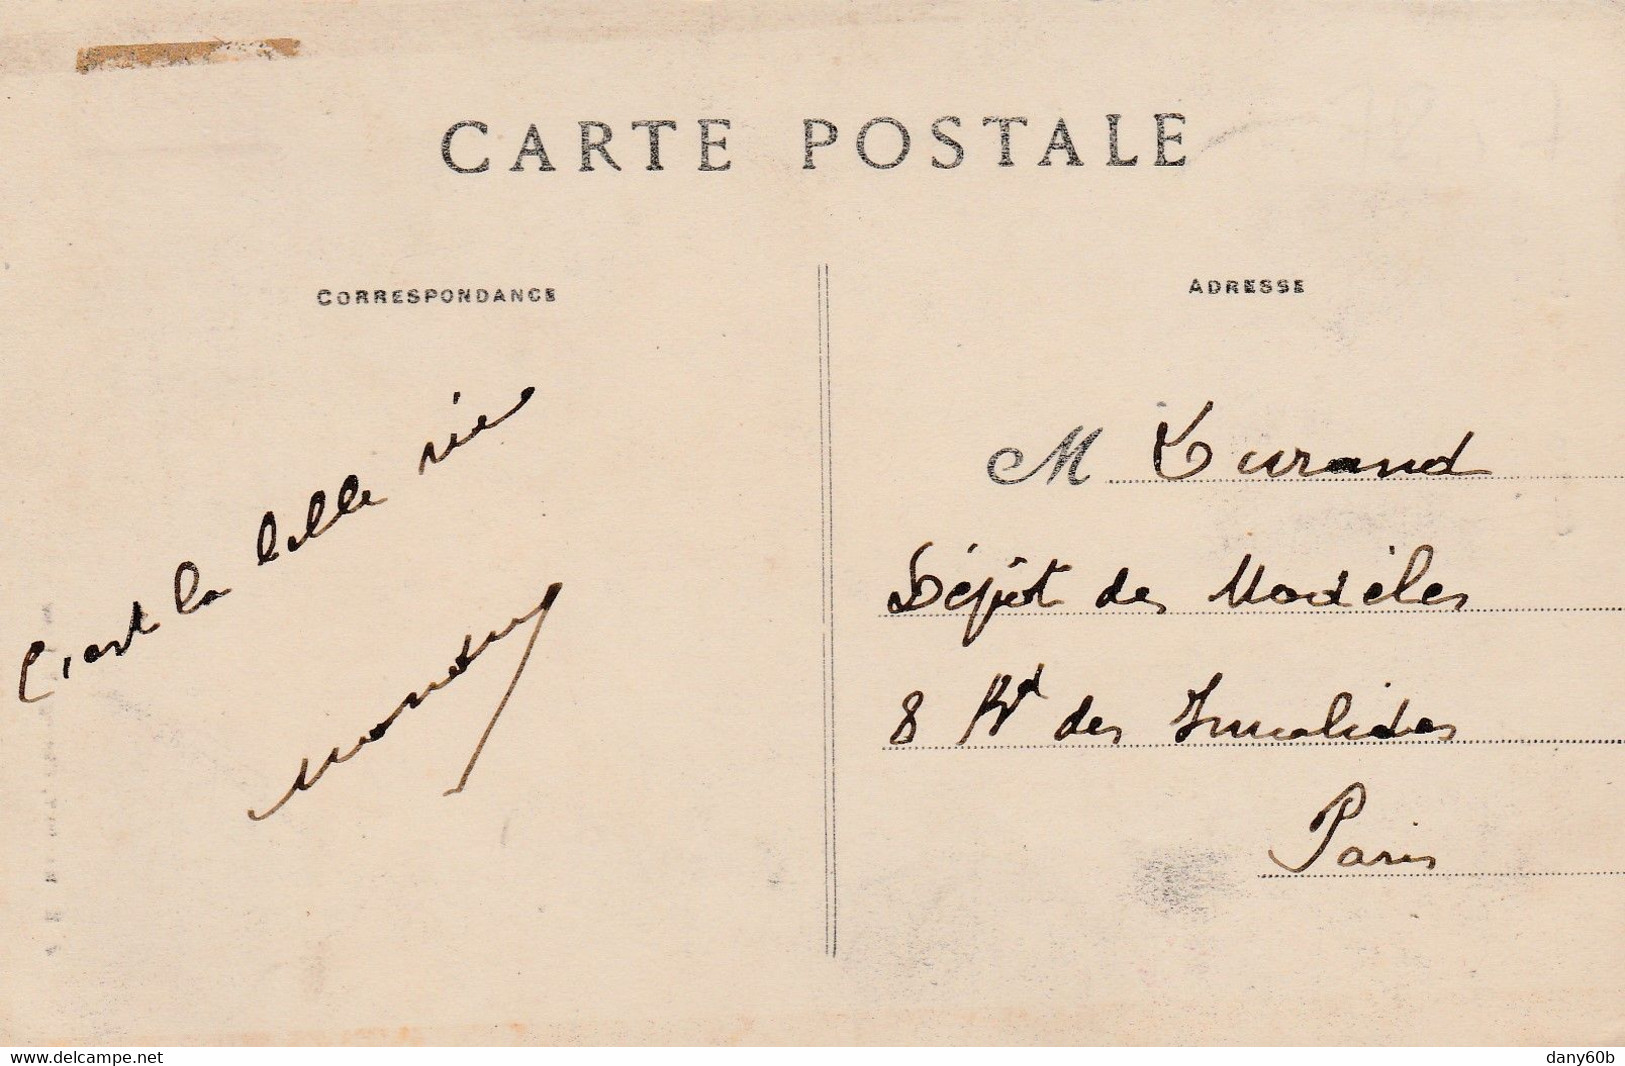 CARTE POSTALE
CORRESPONDANCE
C'est la belle vie
ADRESSE
M Durand
Dépôt de Modèles
8 Bd des Invalides
Paris
www.delcampe.net
dany60b